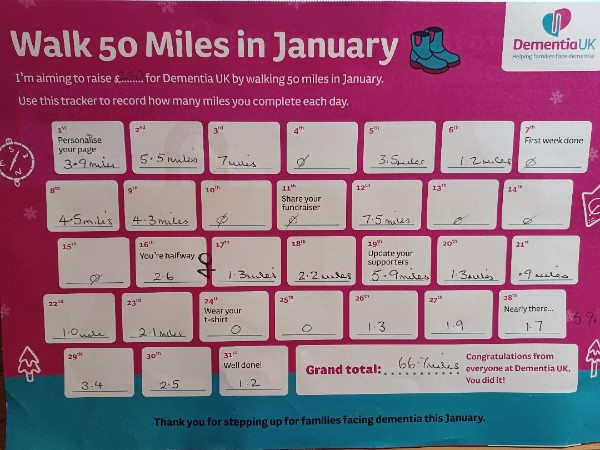 Walk 50 Miles in January
DementiaUK
Helping families face dementia
I'm aiming to raise £........ for Dementia UK by walking 50 miles in January.
Use this tracker to record how many miles you complete each day.
1st 2nd 3rd 4th 5th 6th 7th
Personalise your page First week done
3.9miles 5.5miles 7miles Ø 3.5miles 1.2miles Ø
8th 9th 10th 11th 12th 13th 14th
Share your fundraiser
4.5miles 4.3miles Ø Ø 7.5miles Ø Ø
15th 16th 17th 18th 19th 20th 21st
You're halfway Update your supporters
Ø 2.6 1.3miles 2.2miles 5.9miles 1.3miles .9miles
22nd 23rd 24th 25th 26th 27th 28th
Wear your t-shirt Nearly there...
1.0mile 2.1miles 0 0 1.3 1.9 1.7
29th 30th 31st
Well done!
3.4 2.5 1.2
Grand total: 66.7miles
Congratulations from
everyone at Dementia UK.
You did it!
Thank you for stepping up for families facing dementia this January.